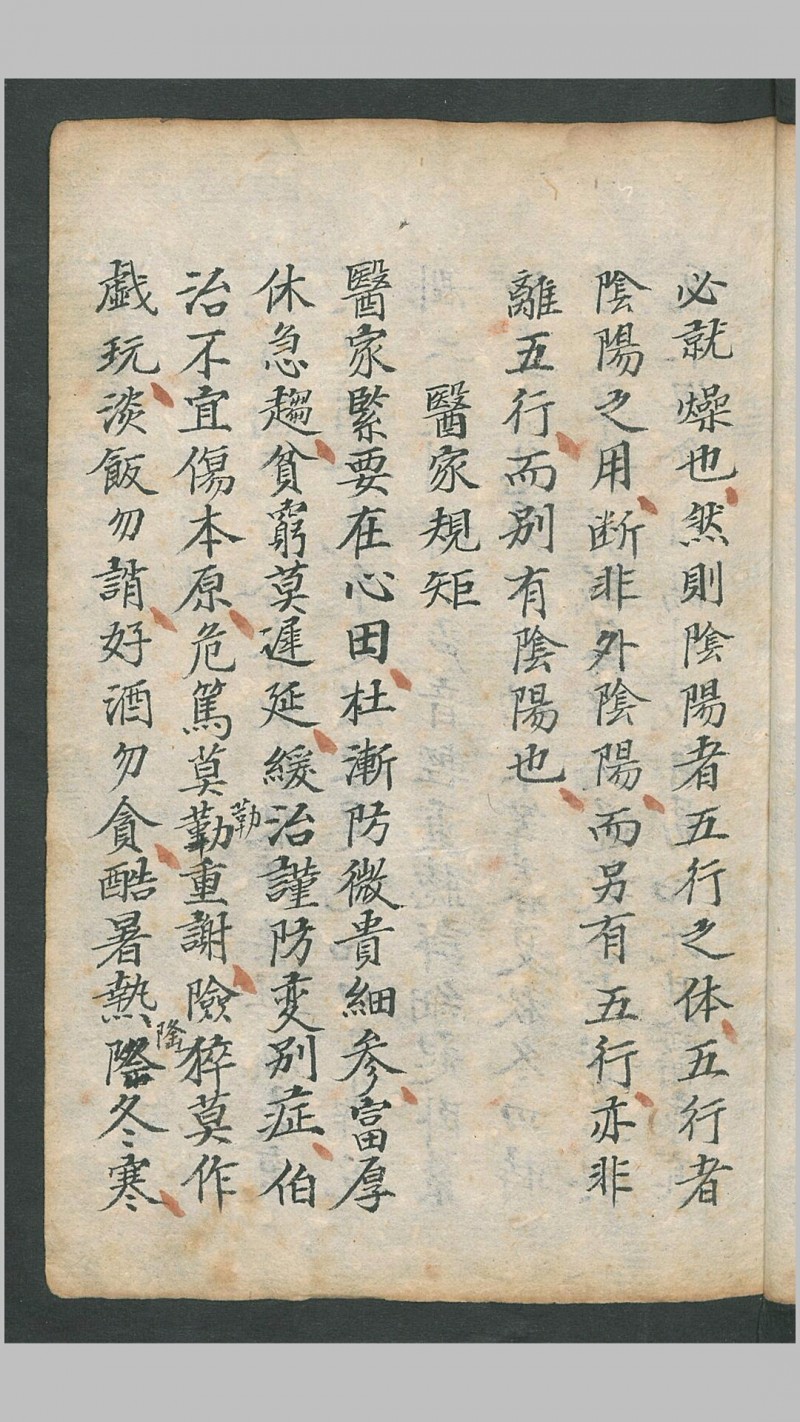 必就燥也然則陰陽者五行之体五行者
陰陽之用断非外陰陽而另有五行亦非
離五行而別有陰陽也
醫家規矩
醫家緊要在心田杜漸防微貴細参富厚
休急趨貧窮莫遲延緩治謹防变別症伯
治不宜傷本原危篤莫勤重謝險猝莫作
勒
戱玩淡飯勿誚好酒勿貪酷暑熱際冬寒
隆